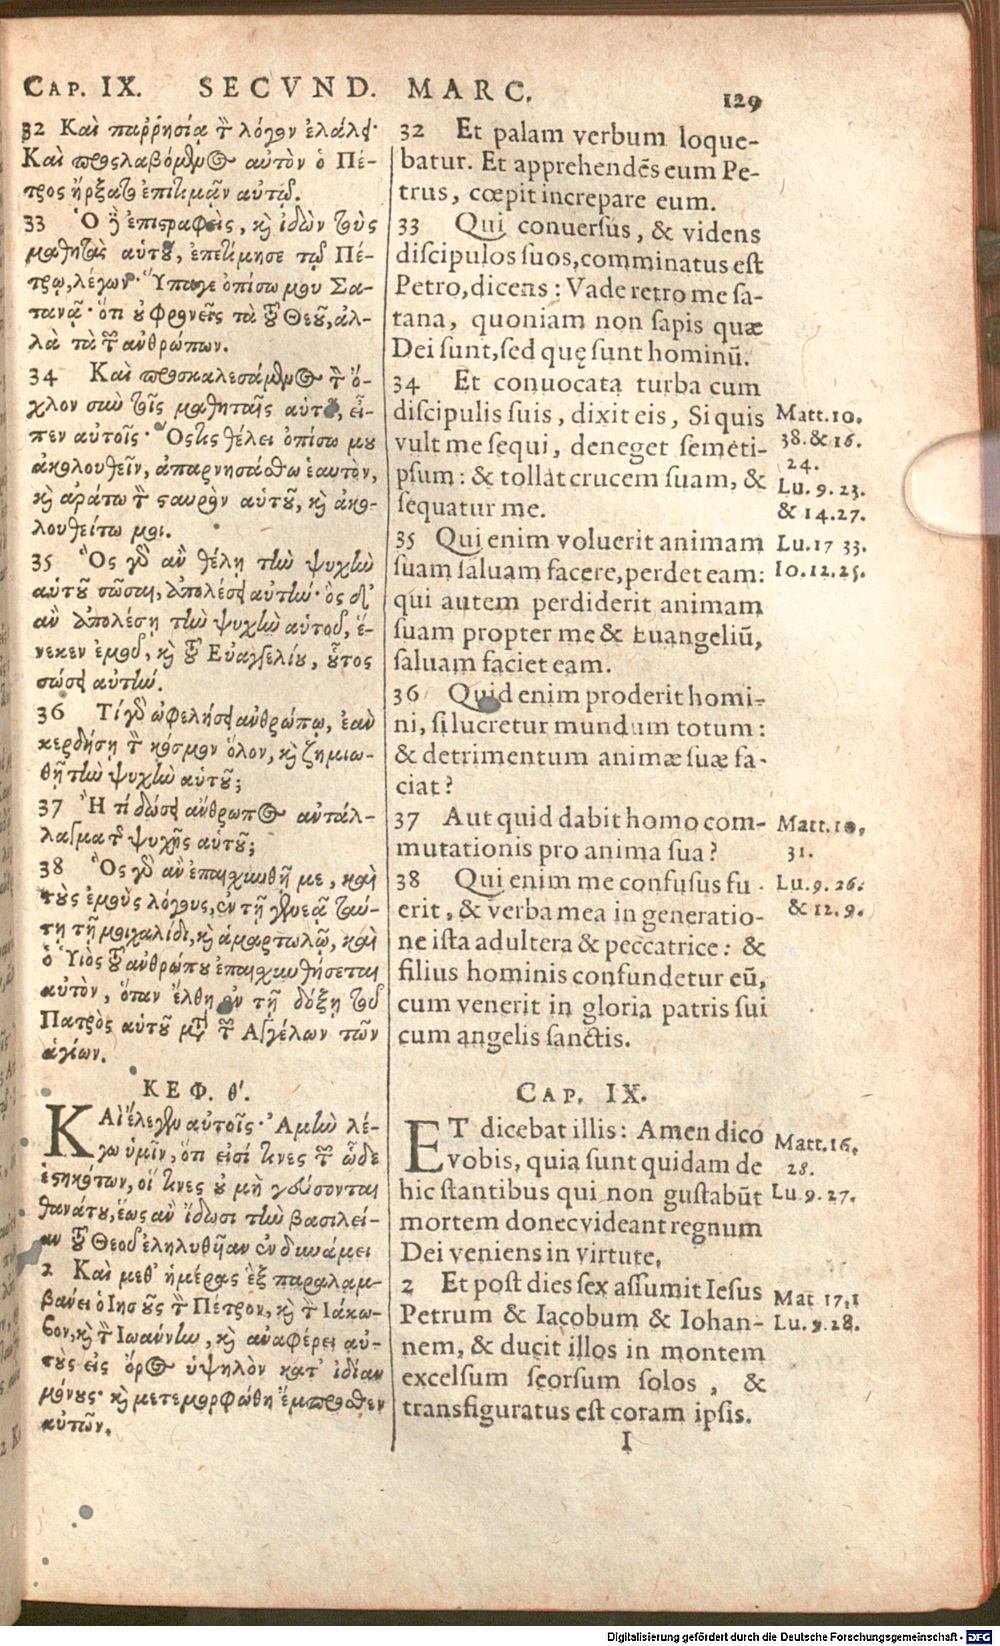 CAP. IX. SECVND. MARC. 129
32 Καὶ παῤῥησίᾳ τὸν λόγον ἐλάλει·
Καὶ προςλαβόμενος αὐτὸν ὁ Πέ-
τρος ἤρξατο ἐπιτιμᾷν αὐτῷ.
33 Ὁ δὲ ἐπιστραφεὶς, καὶ ἰδὼν τοὺς
μαθητὰς αὑτοῦ, ἐπετίμησε τῷ Πέ-
τρῳ, λέγων· Ὕπαγε ὀπίσω μου Σα-
τανᾶ· ὅτι οὐ φρονεῖς τὰ τοῦ Θεοῦ, ἀλ-
λὰ τὰ τῶν ἀνθρώπων.
34 Καὶ προσκαλεσάμενος τὸν ὄ-
χλον σὺν τοῖς μαθηταῖς αὑτοῦ, εἶ-
πεν αὐτοῖς· Ὅςτις θέλει ὀπίσω μου
ἀκολουθεῖν, ἀπαρνησάσθω ἑαυτὸν,
καὶ ἀράτω τὸν σταυρὸν αὑτοῦ, καὶ ἀκο-
λουθείτω μοι.
35 Ὃς γὰρ ἂν θέλῃ τὴν ψυχὴν
αὑτοῦ σῶσαι, ἀπολέσει αὐτήν· ὃς δ'
ἂν ἀπολέσῃ τὴν ψυχὴν αὑτοῦ, ἕ-
νεκεν ἐμοῦ, καὶ τοῦ Εὐαγγελίου, οὗτος
σώσει αὐτήν.
36 Τί γὰρ ὠφελήσει ἄνθρωπῳ, ἐὰν
κερδήσῃ τὸν κόσμον ὅλον, καὶ ζημιω-
θῇ τὴν ψυχὴν αὑτοῦ;
37 Ἢ τί δώσει ἄνθρωπος ἀντάλ-
λαγμα τῆς ψυχῆς αὑτοῦ;
38 Ὃς γὰρ ἂν ἐπαισχυνθῇ με, καὶ
τοὺς ἐμοὺς λόγους, ἐν τῇ γενεᾷ ταύ-
τῃ τῇ μοιχαλίδι, καὶ ἁμαρτωλῷ, καὶ
ὁ Υἱὸς τοῦ ἀνθρώπου ἐπαισχυνθήσεται
αὐτὸν, ὅταν ἔλθῃ ἐν τῇ δόξῃ τοῦ
Πατρὸς αὑτοῦ μετὰ τῶν Ἀγγέλων τῶν
ἁγίων.
ΚΕΦ. θ'.
ΚΑὶ ἔλεγεν αὐτοῖς· Ἀμὴν λέ-
γω ὑμῖν, ὅτι εἰσί τινες τῶν ὧδε
ἑστηκότων, οἵ τινες οὐ μὴ γεύσονται
θανάτου, ἕως ἂν ἴδωσι τὴν βασιλεί-
αν τοῦ Θεοῦ ἐληλυθῆαν ἐν δυνάμει
2 Καὶ μεθ' ἡμέρας ἓξ παραλαμ-
βάνει ὁ Ἰησοῦς τὸν Πέτρον, καὶ τὸν Ἰάκω-
βον, καὶ τὸν Ἰωάννην, καὶ ἀναφέρει αὐ-
τοὺς εἰς ὄρος ὑψηλὸν κατ' ἰδίαν
μόνους· καὶ μετεμορφώθη ἔμπροσθεν
αὐτῶν.
32 Et palam verbum loque-
batur. Et apprehendēs eum Pe-
trus, cœpit increpare eum.
33 Qui conuersus, & videns
discipulos suos, comminatus est
Petro, dicens: Vade retro me sa-
tana, quoniam non sapis quæ
Dei sunt, sed quę sunt hominū.
34 Et conuocata turba cum
discipulis suis, dixit eis, Si quis
vult me sequi, deneget semeti-
psum: & tollat crucem suam, &
sequatur me.
35 Qui enim voluerit animam
suam saluam facere, perdet eam:
qui autem perdiderit animam
suam propter me & Euangeliū,
saluam faciet eam.
36 Quid enim proderit homi-
ni, si lucretur mundum totum:
& detrimentum animæ suæ fa-
ciat?
37 Aut quid dabit homo com-
mutationis pro anima sua?
38 Qui enim me confusus fu-
erit, & verba mea in generatio-
ne ista adultera & peccatrice: &
filius hominis confundetur eū,
cum venerit in gloria patris sui
cum angelis sanctis.
CAP. IX.
ET dicebat illis: Amen dico
vobis, quia sunt quidam de
hic stantibus qui non gustabūt
mortem donec videant regnum
Dei veniens in virtute,
2 Et post dies sex assumit Iesus
Petrum & Iacobum & Iohan-
nem, & ducit illos in montem
excelsum seorsum solos, &
transfiguratus est coram ipsis.
I
Matt. 10.
38. & 16.
24.
Lu. 9. 23.
& 14. 27.
Lu. 17 33.
Io. 12. 25.
Matt. 10,
31.
Lu. 9. 26.
& 12. 9.
Matt. 16.
28.
Lu. 9. 27.
Mat 17, 1
Lu. 9. 28.
Digitalisierung gefördert durch die Deutsche Forschungsgemeinschaft - DFG